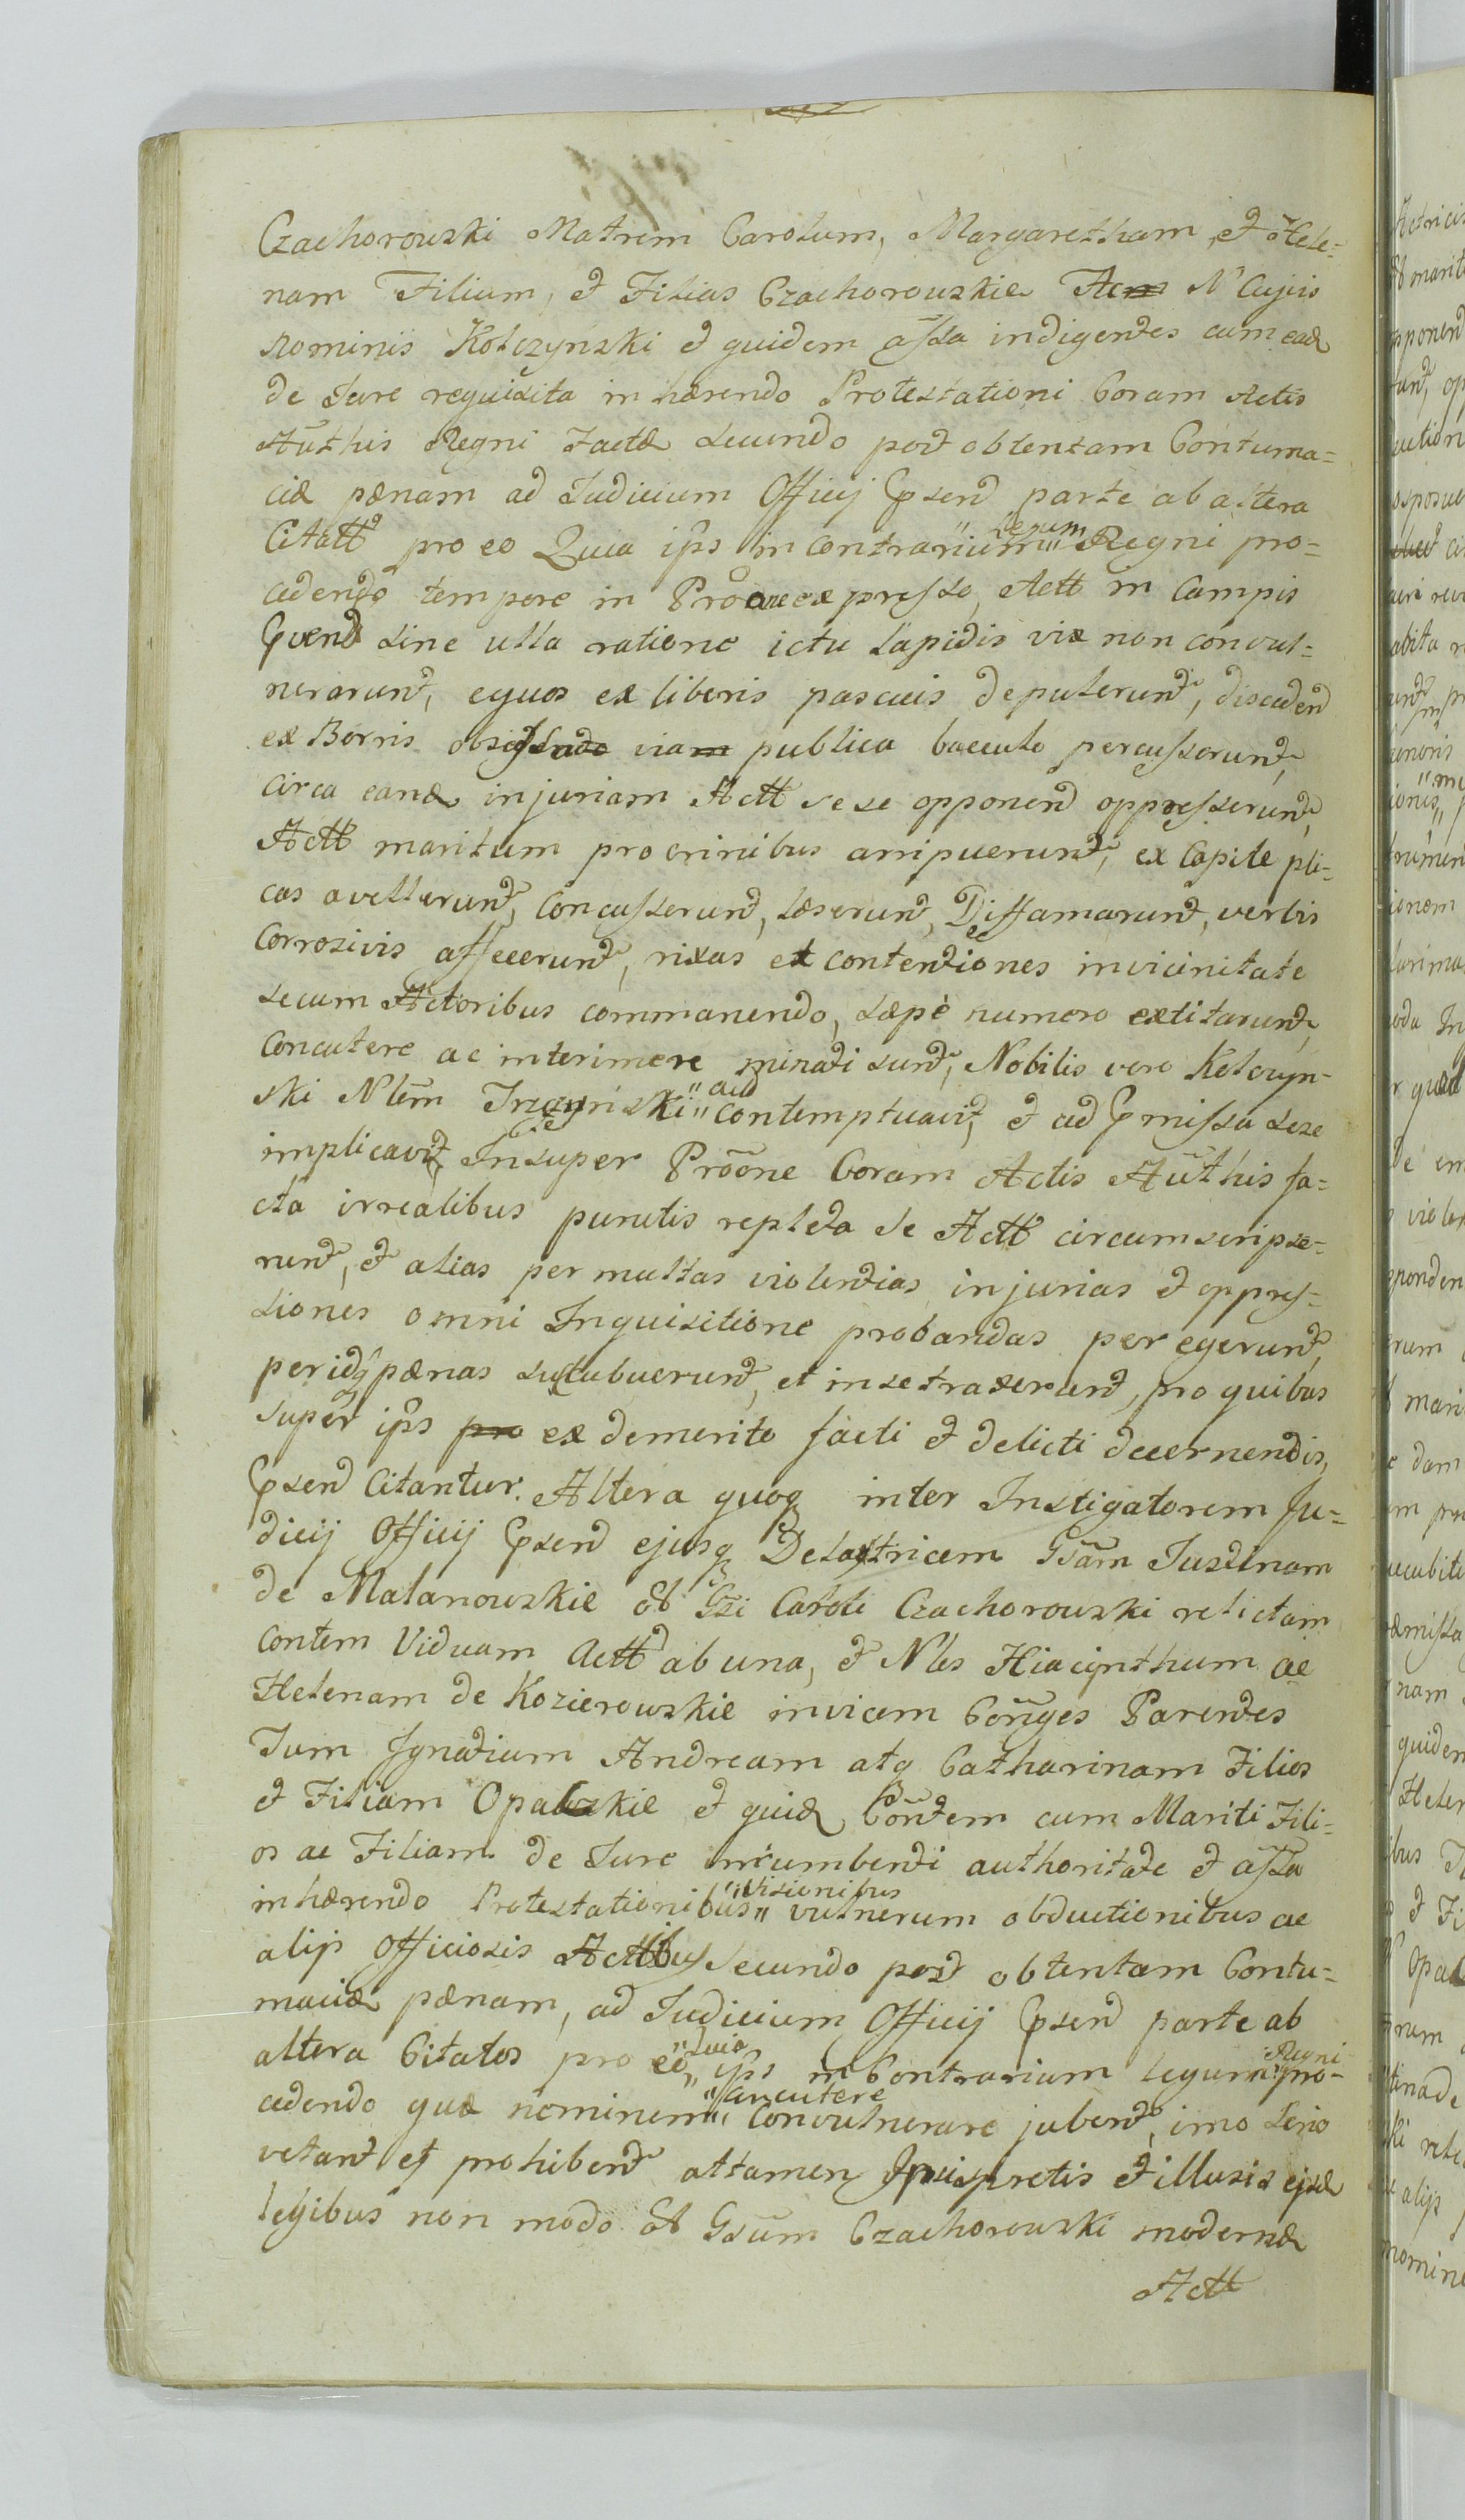 Czachorowski Matrem Carolum, Margaretham et Hele=
nam Filium, et Filias Czachorowskie N Cujus
Nominis Kolczynski et quidem assa indigentes cum ead
de Jure requisita inhærendo Protestationi Coram Actis
Authis Regni Factæ Secundo post obtentam Contuma=
ciæ pænam ad Judicium Officij Psend parte ab altera
Citatt pro eo Quia ips in contrarium "Legum" Regni pro=
cedendo tempore in Proone expresso, Actt in Campis
sine ulla ratione ictu lapidis vix non convul=
nerarunt, equos ex liberis pascuis depulerunt, discedend
ex Borris via publica baculo percusserunt,
circa eand injuriam Actt sese opponend oppresserunt,
Actt maritum pro crinibus arripuerunt, ex Capite pli=
cas avellerunt, Concusserunt, læserunt, Diffamarunt, verbis
Corrosivis affecerunt, rixas et contentiones in vicinitate
secum Actoribus commanendo, sæpè numero extitarunt,
Concutere ac interimere minati sunt, Nobilis vero Kolczyn-
ski Nlem Trzcynski "aut" contemptuavit, et ad Pmissa sese
implicavit, Insuper Prõone Coram Actis Aũthis fa=
cta irrealibus punctis repleta se Actt circumscripse=
runt, et alias per multas violentias injurias et oppres=
siones omni Inquisitione probandas peregerunt,
per idq pænas succubuerunt, et in se traxerunt, pro quibus
super ips pro ex demerito facti et delicti decernendis,
Psend Citantur. Altera quoq inter Instigatorem Ju=
dicij Officij Psend ejusq Delatricem Gsam Justinam
de Malanowskie olt Gsi Caroli Czachorowski relictam
Contem Viduam Actt ab una, et Nles Hiacynthum ac
Helenam de Kozierowskie invicem Cõnges Parentes
Tum Ignatium Andream atq Catharinam Filios
et Filiam Opalskie et quid Cõntem cum Mariti Fili=
os ac Filiam de Jure incumbenti authoritate et assa
inhærendo Protestationibus "Visionibus" vulnerum obductionibus ac
alijs Officiosis Acttibus Secundo post obtentam Contu=
maciæ pænam, ad Judicium Officij Psend parte ab
altera Citatos pro eo "Quia" ips in Contrarium legum "Regni" pro-
cedendo quæ neminem "parcutere" Convulnerare jubent, imo serio
vetant et prohibent attamen Ipsi spretis et illusis ejsd
legibus non modo olt Gsum Czachorowski modernæ
Actt